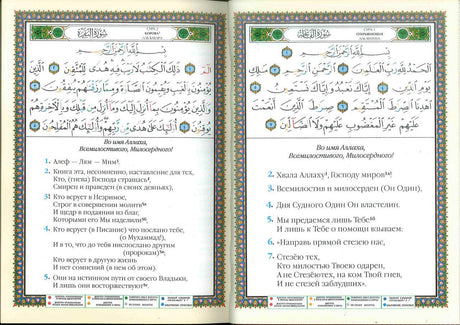 سُورَةُ الفَاتِحَة
СУРА 1
ОТКРЫВАЮЩАЯ
بِسْمِ اللَّهِ الرَّحْمَٰنِ الرَّحِيمِ
الْحَمْدُ لِلَّهِ رَبِّ الْعَالَمِينَ الرَّحْمَٰنِ الرَّحِيمِ
مَالِكِ يَوْمِ الدِّينِ إِيَّاكَ نَعْبُدُ وَإِيَّاكَ نَسْتَعِينُ
اهْدِنَا الصِّرَاطَ الْمُسْتَقِيمَ صِرَاطَ الَّذِينَ أَنْعَمْتَ
عَلَيْهِمْ غَيْرِ الْمَغْضُوبِ عَلَيْهِمْ وَلَا الضَّالِّينَ
Во имя Аллаха,
Всемилостивого, Милосердного!
2. Хвала Аллаху, Господу миров
3. Всемилостив и милосерден (Он Один),
4. Дня Судного Один Он властелин.
5. Мы предаемся лишь Тебе
И лишь к Тебе о помощи взываем:
6. «Направь прямой стезею нас,
7. Стезёю тех,
Кто милостью Твоею одарен,
А не Стезёю тех, на ком Твой гнев,
И не стезей заблудших».
سُورَةُ البَقَرَة
СУРА 2
КОРОВА
بِسْمِ اللَّهِ الرَّحْمَٰنِ الرَّحِيمِ
الم ذَٰلِكَ الْكِتَابُ لَا رَيْبَ فِيهِ هُدًى لِلْمُتَّقِينَ الَّذِينَ
يُؤْمِنُونَ بِالْغَيْبِ وَيُقِيمُونَ الصَّلَاةَ وَمِمَّا رَزَقْنَاهُمْ يُنْفِقُونَ
وَالَّذِينَ يُؤْمِنُونَ بِمَا أُنْزِلَ إِلَيْكَ وَمَا أُنْزِلَ مِنْ قَبْلِكَ وَبِالْآخِرَةِ هُمْ
يُوقِنُونَ أُولَٰئِكَ عَلَىٰ هُدًى مِنْ رَبِّهِمْ وَأُولَٰئِكَ هُمُ الْمُفْلِحُونَ
Во имя Аллаха,
Всемилостивого, Милосердного!
1. Алеф — Лям — Мим
2. Книга эта, несомненно, наставление для тех,
Кто, (гнева) Господа страшась
Смирен и праведен (в своих деяньях),
3. Кто верует в Незримое,
Строг в совершении молитв
И щедр в подаянии из благ,
Которыми его Мы наделили
4. Кто верует (в Писание) что послано тебе,
(о Мухаммад!),
И в то, что до тебя ниспослано другим
(пророкам)
Кто верует в другую жизнь
И нет сомнений (в нем об этом).
5. Они на истинном пути от своего Владыки,
И лишь они восторжествуют